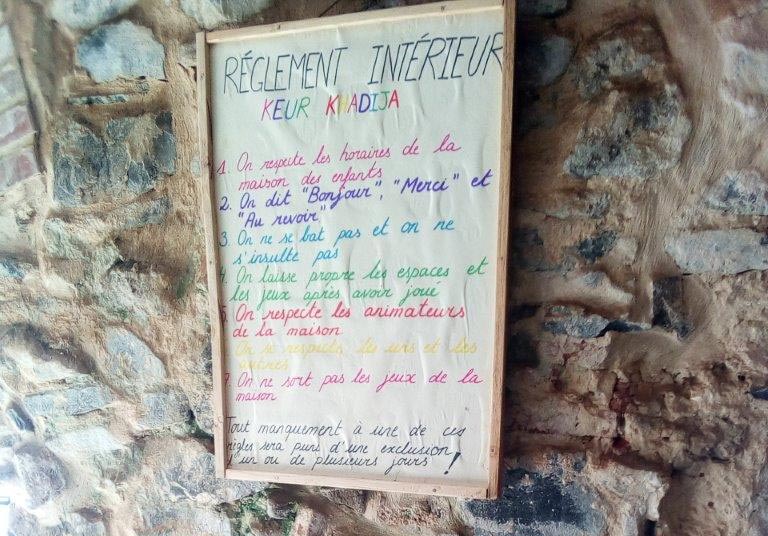 RÉGLEMENT INTÉRIEUR
KEUR KHADIJA
1. On respecte les horaires de la
maison des enfants
2. On dit "Bonjour", "Merci" et
"Au revoir"
3. On ne se bat pas et on ne
s'insulte pas
4. On laisse propre les espaces et
les jeux après avoir joué
5. On respecte les animateurs
de la maison
On se respecte les uns et les
autres
7. On ne sort pas les jeux de la
maison
Tout manquement à une de ces
règles sera puni d'une exclusion
d'un ou de plusieurs jours !